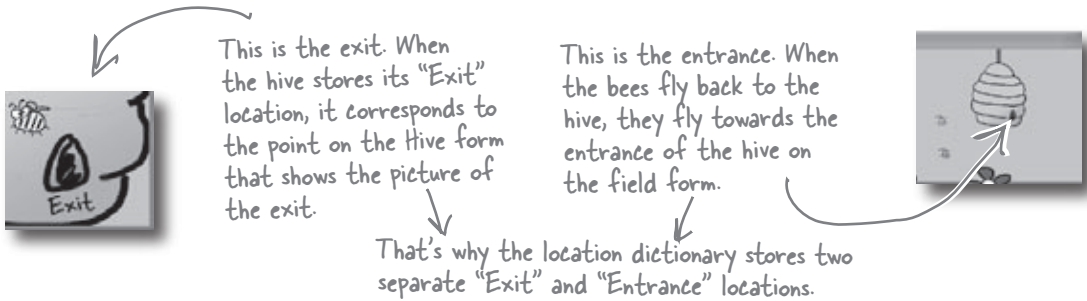 This is the exit. When
the hive stores its “Exit”
location, it corresponds to
the point on the Hive form
that shows the picture of
the exit.
This is the entrance. When
the bees fly back to the
hive, they fly towards the
entrance of the hive on
the field form.
Exit
That's why the location dictionary stores two
separate “Exit” and “Entrance” locations.